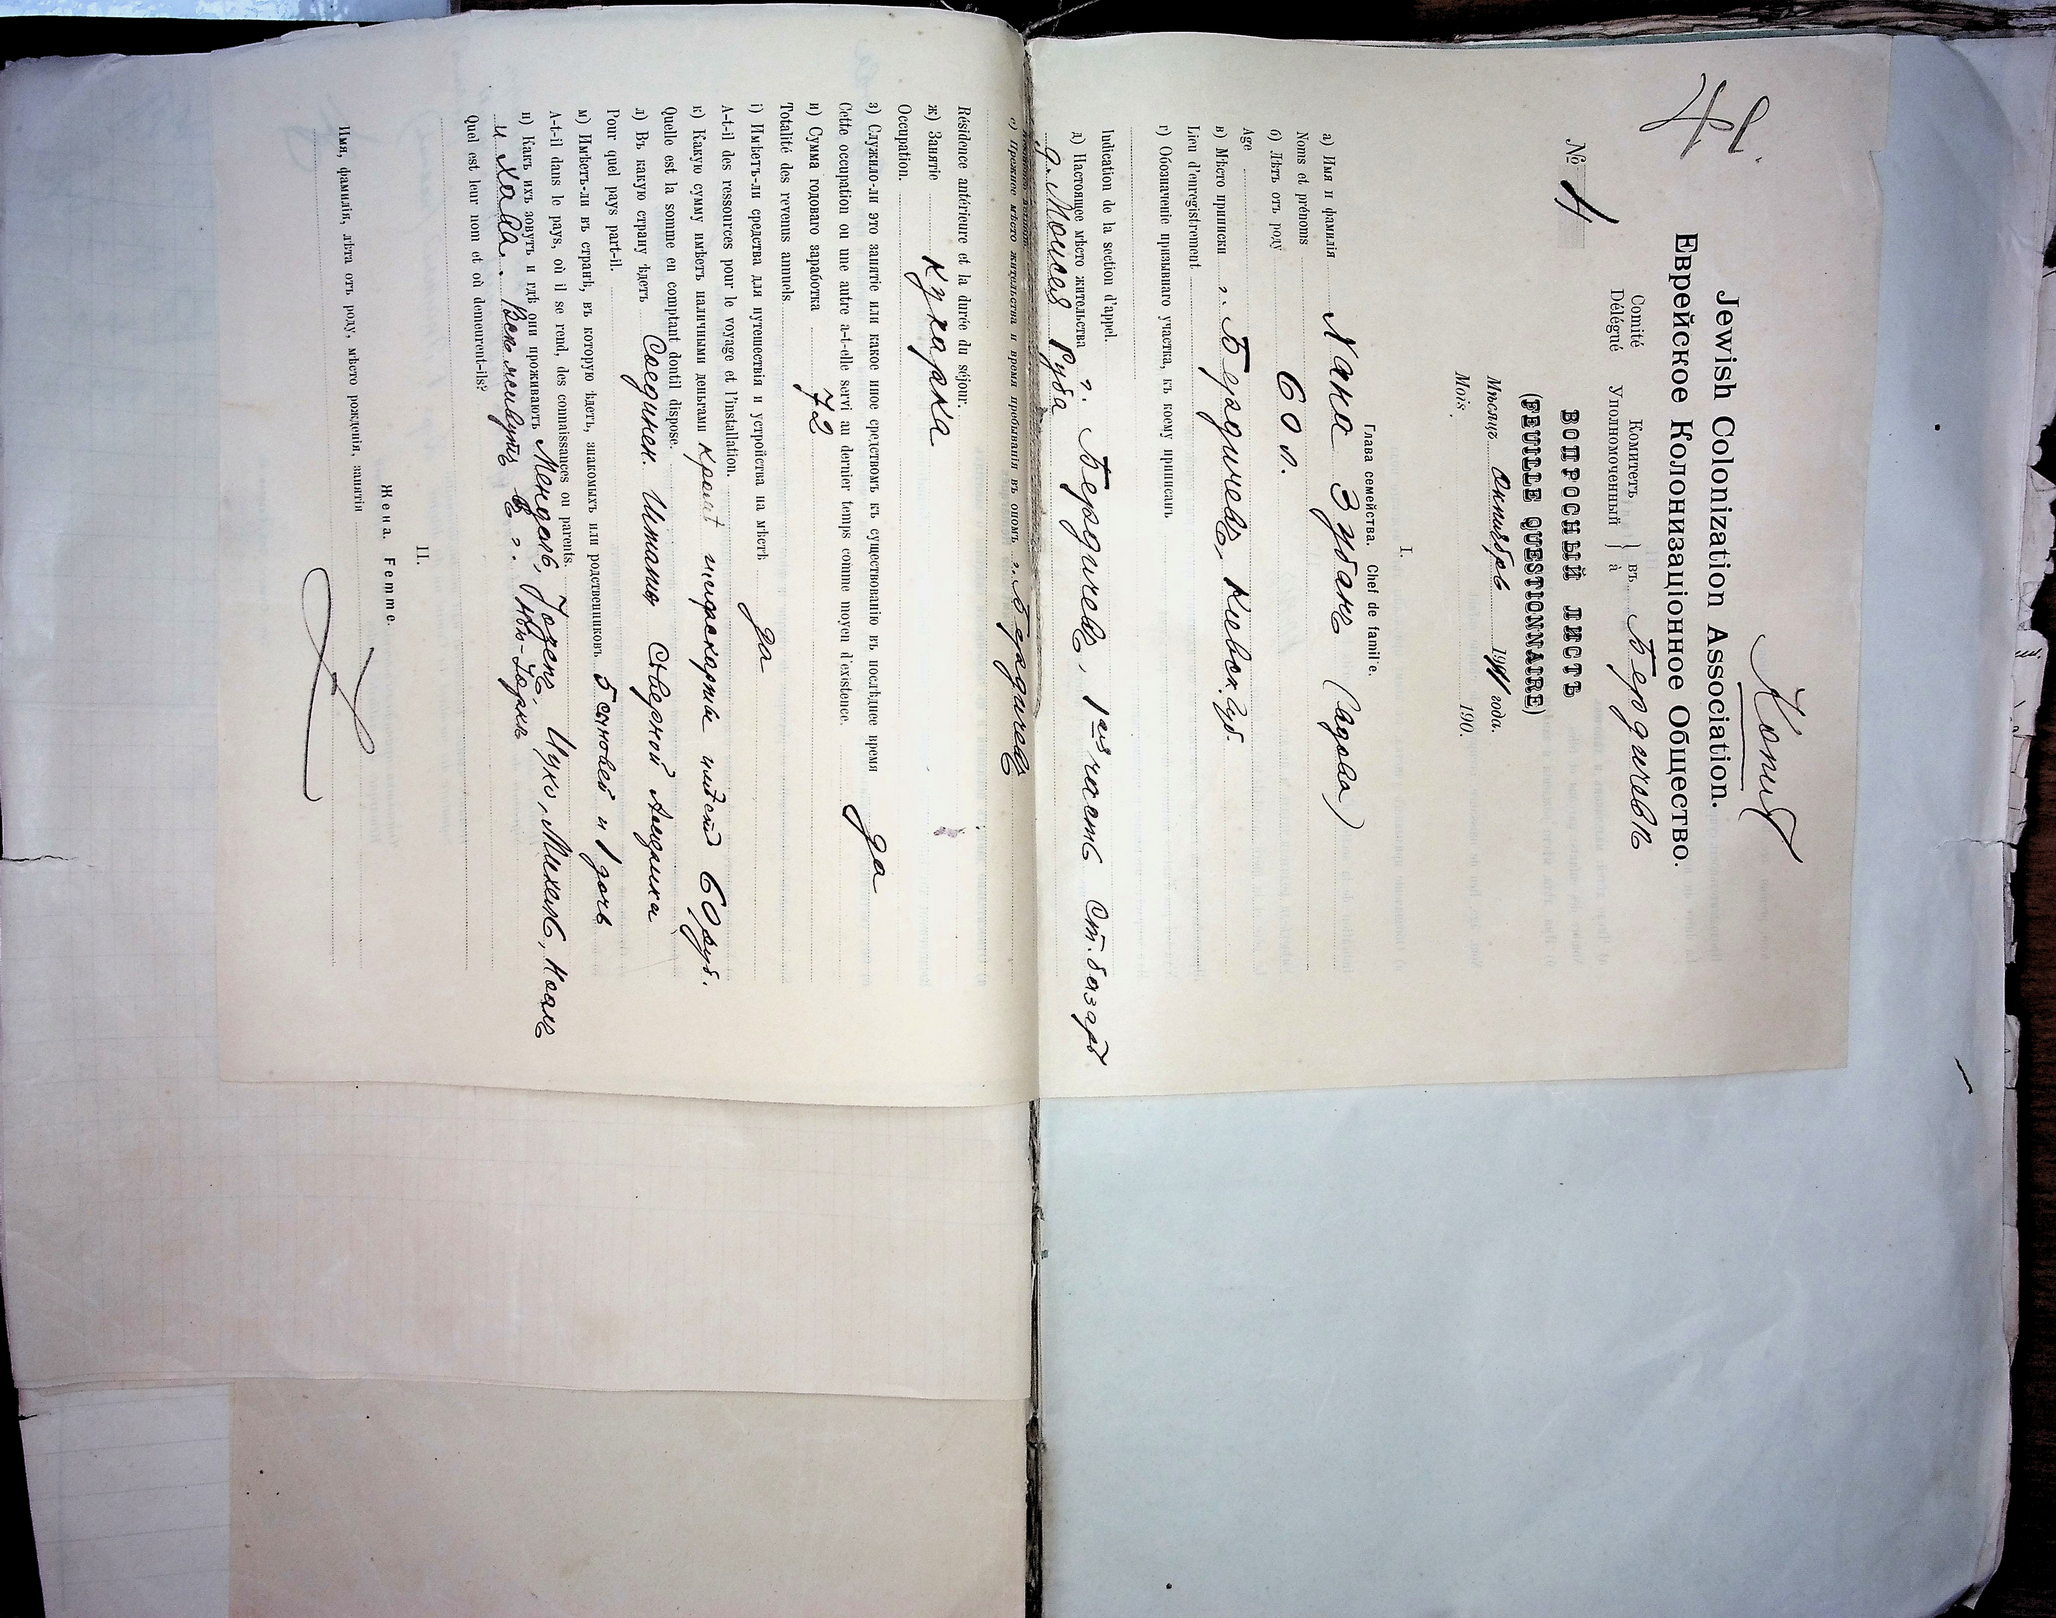 Копія
Jewish Colonization Association.
Еврейское Колонизаціонное Общество.
Comité Комитетъ } въ Бердичевѣ
Délégué Уполномоченный } à
№ 4
ВОПРОСНЫЙ ЛИСТЪ
(FEUILLE QUESTIONNAIRE)
Мѣсяцъ Октябрь 1911 года.
Mois. 190 .
I.
Глава семейства. Chef de famille.
а) Имя и фамилія Хана Зубанъ (вдова)
Noms et prénoms
б) Лѣтъ отъ роду 60 л.
Age
в) Мѣсто приписки г. Бердичевъ, Киевск. губ.
Lieu d'enregistrement
г) Обозначеніе призывнаго участка, къ коему приписанъ
Indication de la section d'appel.
д) Настоящее мѣсто жительства г. Бердичевъ, 1ая часть ст. базаръ
д. Моисея Руба
е) Прежнее мѣсто жительства и время пребыванія въ ономъ г. Бердичевъ
Résidence antérieure et la durée du séjour.
ж) Занятіе кухарка
Occupation.
з) Служило-ли это занятіе или какое иное средствомъ къ существованію въ послѣднее время да
Cette occupation ou une autre a-t-elle servi au dernier temps comme moyen d'existence.
и) Сумма годоваго заработка 72
Totalité des revenus annuels
і) Имѣетъ-ли средства для путешествія и устройства на мѣстѣ да
A-t-il des ressources pour le voyage et l'installation.
к) Какую сумму имѣетъ наличными деньгами кромѣ шифскарты 60 руб.
Quelle est la somme en comptant dontil dispose.
л) Въ какую страну ѣдетъ Соединен. Штаты Сѣверной Америки
Pour quel pays part-il.
м) Имѣетъ-ли въ странѣ, въ которую ѣдетъ, знакомыхъ или родственниковъ 5 сыновей и 1 дочь
A-t-il dans le pays, où il se rend, des connaissances ou parents.
н) Какъ ихъ зовутъ и гдѣ они проживаютъ Мендель, Іозепъ, Ицко, Михель, Коалъ
и Хава. Всѣ живутъ въ г. Нью-Іоркѣ
Quel est leur nom et où demeurent-ils?
II.
Жена. Femme.
Имя, фамилія, лѣта отъ роду, мѣсто рожденія, занятія